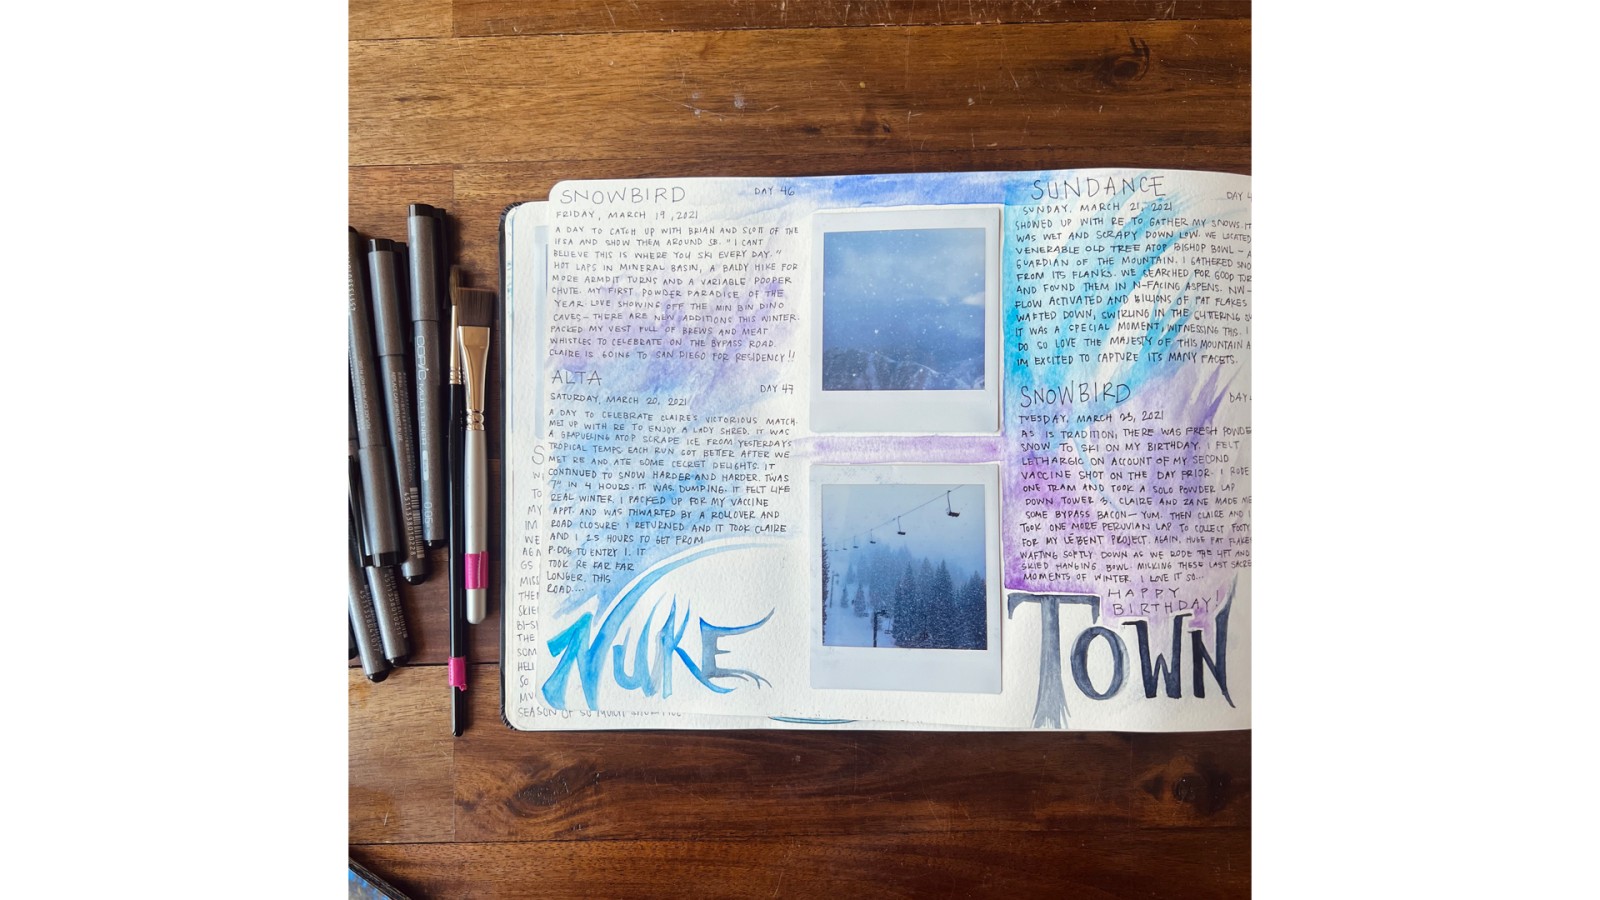 SNOWBIRD
DAY 46
FRIDAY, MARCH 19, 2021
A DAY TO CATCH UP WITH BRIAN AND SCOTT OF THE
IFSA AND SHOW THEM AROUND SB. "I CANT
BELIEVE THIS IS WHERE YOU SKI EVERY DAY."
HOT LAPS IN MINERAL BASIN, A BALDY HIKE FOR
MORE ARMDIT TURNS AND A VARIABLE POOPER
CHUTE. MY FIRST POWDER PARADISE OF THE
YEAR. LOVE SHOWING OFF THE MIN BIN DINO
CAVES - THERE ARE NEW ADDITIONS THIS WINTER.
PACKED MY VEST FULL OF BREWS AND MEAT
WHISTLES TO CELEBRATE ON THE BYPASS ROAD.
CLAIRE IS GOING TO SAN DIEGO FOR RESIDENCY!!
ALTA
DAY 47
SATURDAY, MARCH 20, 2021
A DAY TO CELEBRATE CLAIRE'S VICTORIOUS MATCH.
MET UP WITH RE TO ENJOY A LADY SHRED. IT WAS
A GRAPUELING ATOP SCRAPE ICE FROM YESTERDAYS
TROPICAL TEMPS. EACH RUN GOT BETTER AFTER WE
MET RE AND ATE SOME SECRET DELIGHTS. IT
CONTINUED TO SNOW HARDER AND HARDER. TWAS
7" IN 4 HOURS. IT WAS DUMPING. IT FELT LIKE
REAL WINTER. I PACKED UP FOR MY VACCINE
APPT. AND WAS THWARTED BY A ROLLOVER AND
ROAD CLOSURE. I RETURNED AND IT TOOK CLAIRE
AND I 2.5 HOURS TO GET FROM
P-DOG TO ENTRY 1. IT
TOOK RE FAR FAR
LONGER. THIS
ROAD...
NUKE
S
WE
TO
MY
IM
WE
AGA
GS
MISS
THE
SKIE
BI-S
THE
SOM
HELI
SO
MV
SEASON OF SO MUCH
SUNDANCE
DAY 4
SUNDAY, MARCH 21, 2021
SHOWED UP WITH RE TO GATHER MY SNOWS. IT
WAS WET AND SCRAPY DOWN LOW. WE LOCATED
VENERABLE OLD TREE ATOP BISHOP BOWL - A
GUARDIAN OF THE MOUNTAIN. I GATHERED SNO
FROM ITS FLANKS. WE SEARCHED FOR GOOD TUR
AND FOUND THEM IN N-FACING ASPENS. NW-
FLOW ACTIVATED AND BILLIONS OF FAT FLAKES
WAFTED DOWN, SWIRLING IN THE GLITTERING
IT WAS A SPECIAL MOMENT, WITNESSING THIS. I
DO SO LOVE THE MAJESTY OF THIS MOUNTAIN A
IM EXCITED TO CAPTURE ITS MANY FACETS.
SNOWBIRD
DAY 4
TUESDAY, MARCH 23, 2021
AS IS TRADITION, THERE WAS FRESH POWDE
SNOW TO SKI ON MY BIRTHDAY. I FELT
LETHARGIC ON ACCOUNT OF MY SECOND
VACCINE SHOT ON THE DAY PRIOR. I RODE
ONE TRAM AND TOOK A SOLO POWDER LAP
DOWN TOWER 3. CLAIRE AND ZANE MADE ME
SOME BYPASS BACON - YUM. THEN CLAIRE AND I
TOOK ONE MORE PERUVIAN LAP TO COLLECT FOOTY
FOR MY LĒBENT PROJECT. AGAIN, HUGE FAT FLAKES
WAFTING SOFTLY DOWN AS WE RODE THE LIFT AND
SKIED HANGING BOWL. MILKING THESE LAST SACRE
MOMENTS OF WINTER. I LOVE IT SO...
HAPPY
BIRTHDAY!
TOWN
COPIC MULTILINER
0.05